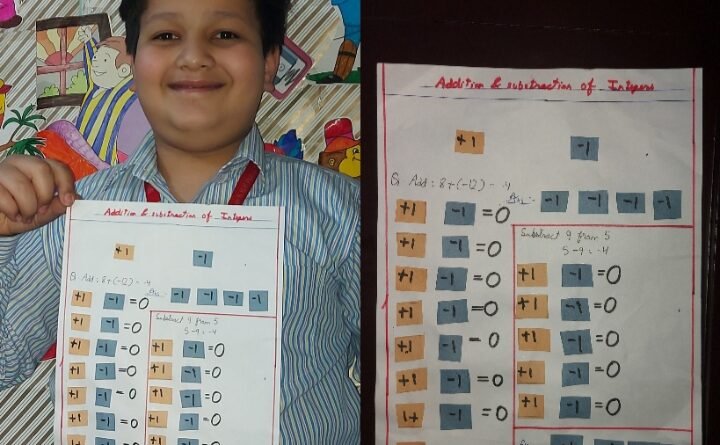 Addition & substraction of Integers
+1 -1
Q. Add : 8+(-12) = -4
Ans:- -1 -1 -1 -1
+1 -1 =0
+1 -1 =0
+1 -1 =0
+1 -1 =0
+1 -1 - 0
+1 -1 =0
Substract 9 from 5
5-9=-4
+1 -1 =0
+1 -1 =0
+1 -1 =0
+1 -1 =0
Addition & substraction of Integers
+1 -1
Q. Add : 8+(-12) = -4
Ans:- -1 -1 -1 -1
+1 -1 =0
+1 -1 =0
+1 -1 =0
+1 -1 =0
+1 -1 - 0
+1 -1 =0
1+ -1 =0
Substract 9 from 5
5-9=-4
+1 -1 =0
+1 -1 =0
+1 -1 =0
+1 -1 =0
+1 -1 =0